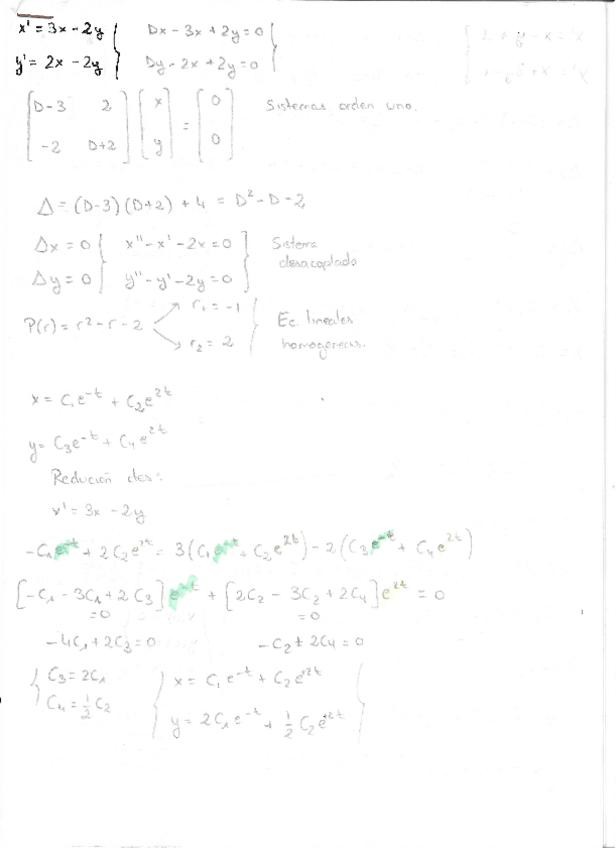 x' = 3x - 2y } Dx - 3x + 2y = 0
y' = 2x - 2y } Dy - 2x + 2y = 0
[D-3 2] [x] = [0] Sistemas orden uno.
[-2 D+2] [y] [0]
Δ = (D-3)(D+2) + 4 = D² - D - 2
Δx = 0 { x'' - x' - 2x = 0 } Sistema
Δy = 0 { y'' - y' - 2y = 0 } desacoplado
r₁ = -1
P(r) = r² - r - 2 Ec. lineales
r₂ = 2 homogeneas.
x = C₁e^-t + C₂e^2t
y = C₃e^-t + C₄e^2t
Redución ctes:
x' = 3x - 2y
-C₁e^-t + 2C₂e^2t = 3(C₁e^-t + C₂e^2t) - 2(C₃e^-t + C₄e^2t)
[-C₁ - 3C₁ + 2C₃]e^-t + [2C₂ - 3C₂ + 2C₄]e^2t = 0
=0 =0
-4C₁ + 2C₃ = 0 -C₂ + 2C₄ = 0
{ C₃ = 2C₁ { x = C₁e^-t + C₂e^2t
{ C₄ = ½C₂ { y = 2C₁e^-t + ½C₂e^2t